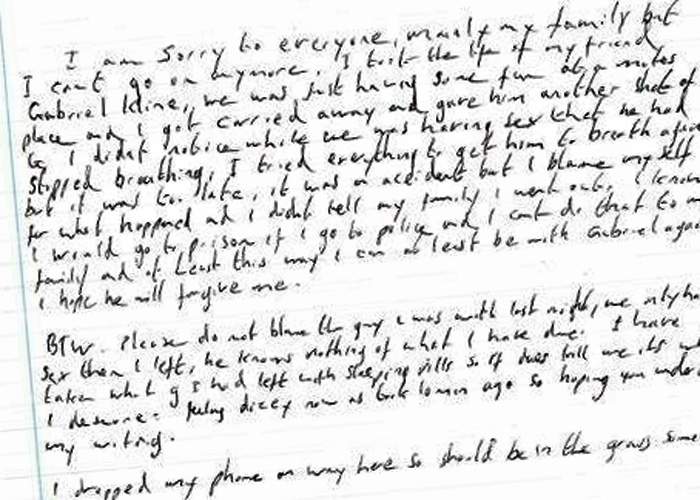 I am sorry to everyone, mainly my family but
I cant go on anymore. I took the life of my friend
Gabriel Kline, we was just having some fun at a mates
place and I got carried away and gave him another shot of
G I didnt notice while we was having sex that he had
stopped breathing, I tried everything to get him to breath again
but it was to late, it was a accident but I blame myself
for what happened and I didnt tell my family I went out. I know
I would go to prison if I go to police and I cant do that to my
family and at least this way I can at least be with Gabriel again
I hope he will forgive me.
BTW. Please do not blame the guy I was with last night, we only had
sex then I left, he knows nothing of what I have done. I have
taken what g I had left with sleeping pills so if it does kill me its what
I deserve. Feeling dizzy now as took 10 min ago so hoping you under
my writing.
I dropped my phone on way here so should be in the grass some